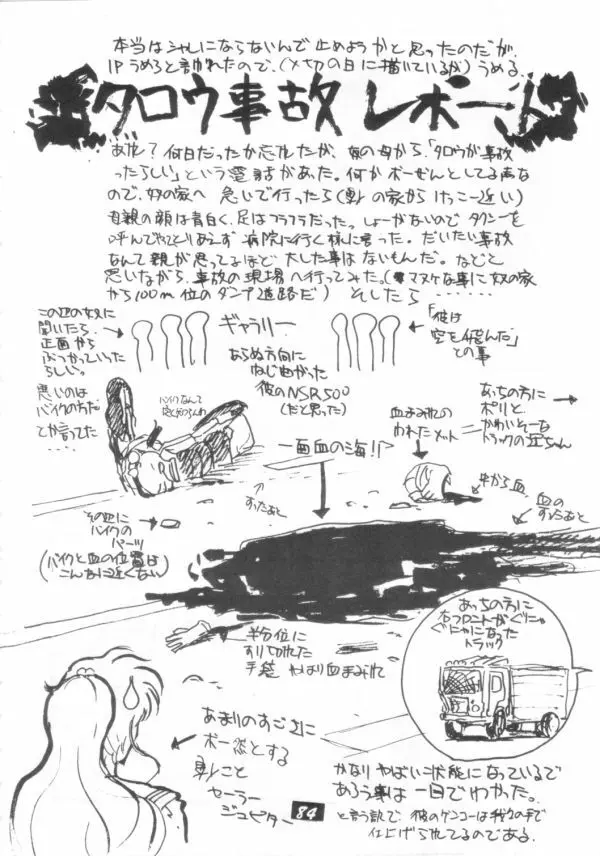 本当はシャレにならないんで止めようかと思ったのだが、
1Pうめろと言われたので、(〆切の日に描いているが)うめる。
タロウ事故レポート
あれ?何日だったか忘れたが、奴の母から、「タロウが事故
ったらしい」という電話があった。何かボーぜんとしてる声な
ので、奴の家へ 急いで行ったら( の家からけっこー近い)
母親の顔は青白く、足はフラフラだった。しょーがないので タクシーを
呼んでやってとりあえず病院に行く様に言った。だいたい事故
なんて親が思ってるほど大した事はないもんだ。などと
思いながら、事故の現場へ行ってみた。(マヌケな事に奴の家
から100m位のダンプ道路だ) そしたら ‥‥‥
この辺の奴に
聞いたら、
正面から
ぶつかっていった
らしい。
悪いのは
バイクの方だ
とか言ってた
‥‥
ギャラリー
「彼は
空を飛んだ」
との事
あらぬ方向に
ねじ曲がった
彼のNSR500
(だと思った)
バイクなんて
血まみれの
われたメット
あっちの方に
ポリと
かわいそーな
トラックの運ちゃん
一面血の海!!
中から血
血の
すったあと
その辺に
バイクの
パーツ
(バイクと血の位置は
こんなに近くない)
半分位に
すり切れた
手袋 やはり血まみれ
あっちの方に
右フロントがぐにゃ
ぐにゃになった
トラック
あまりのすごさに
ボー然とする
こと
セーラー
ジュピター
84
かなりやばい状態になっているで
あろう事は一目でわかった。
と言う訳で、彼のゲンコーは我々の手で
仕上げられてるのである。